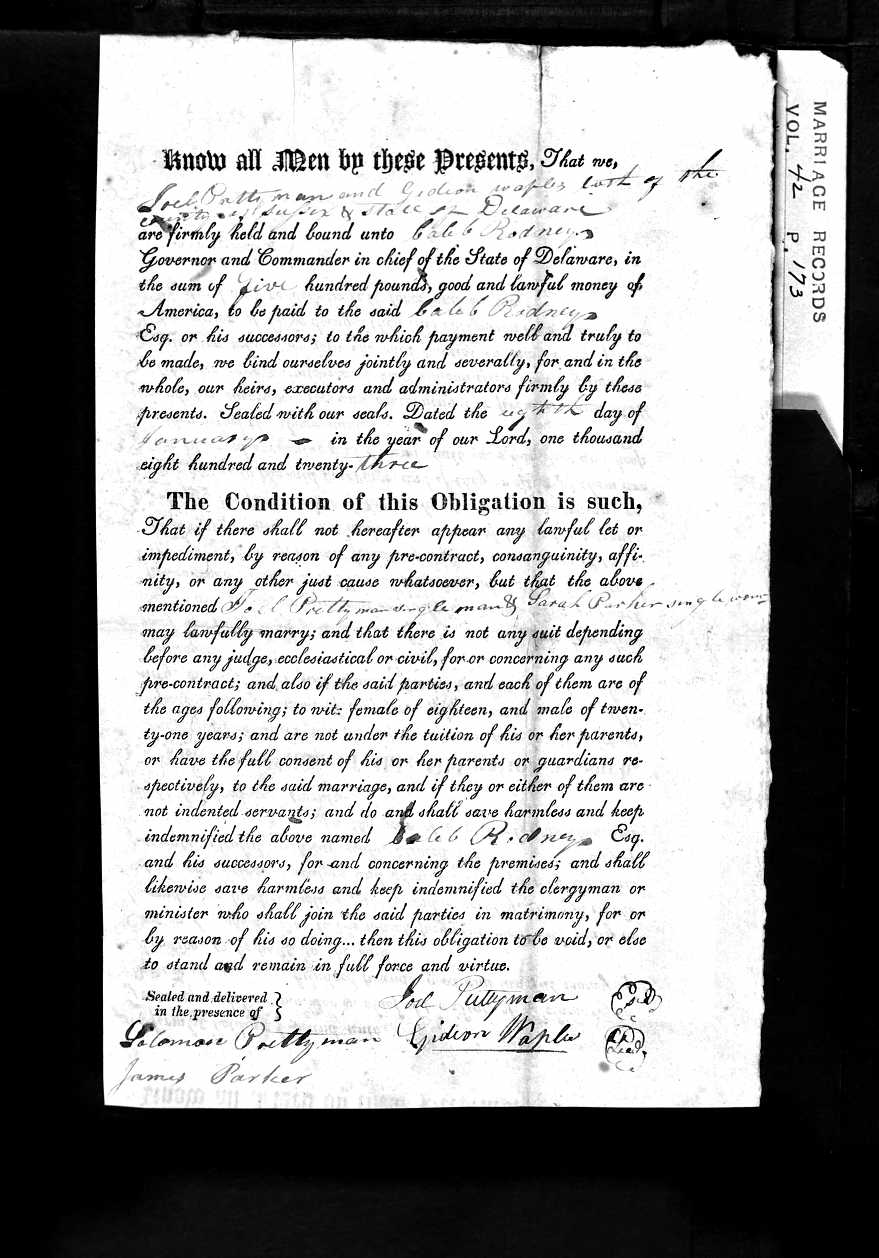 Know all Men by these Presents, That we,
Joel Prettyman and Gideon Waples both of the
county of Sussex & State of Delaware
are firmly held and bound unto Caleb Rodney
Governor and Commander in chief of the State of Delaware, in
the sum of five hundred pounds, good and lawful money of
America, to be paid to the said Caleb Rodney
Esq. or his successors; to the which payment well and truly to
be made, we bind ourselves jointly and severally, for and in the
whole, our heirs, executors and administrators firmly by these
presents. Sealed with our seals. Dated the eighth day of
January - in the year of our Lord, one thousand
eight hundred and twenty-three
The Condition of this Obligation is such,
That if there shall not hereafter appear any lawful let or
impediment, by reason of any pre-contract, consanguinity, affi-
nity, or any other just cause whatsoever, but that the above
mentioned Joel Prettyman single man & Sarah Parker single wom
may lawfully marry; and that there is not any suit depending
before any judge, ecclesiastical or civil, for or concerning any such
pre-contract; and also if the said parties, and each of them are of
the ages following; to wit: female of eighteen, and male of twen-
ty-one years; and are not under the tuition of his or her parents,
or have the full consent of his or her parents or guardians re-
spectively, to the said marriage, and if they or either of them are
not indented servants; and do and shall save harmless and keep
indemnified the above named Caleb Rodney Esq.
and his successors, for and concerning the premises; and shall
likewise save harmless and keep indemnified the clergyman or
minister who shall join the said parties in matrimony, for or
by reason of his so doing... then this obligation to be void, or else
to stand and remain in full force and virtue.
Sealed and delivered
in the presence of
Joel Prettyman
Solomon Prettyman Gideon Waples Seal
James Parker
MARRIAGE RECORDS
VOL. 42 P. 173